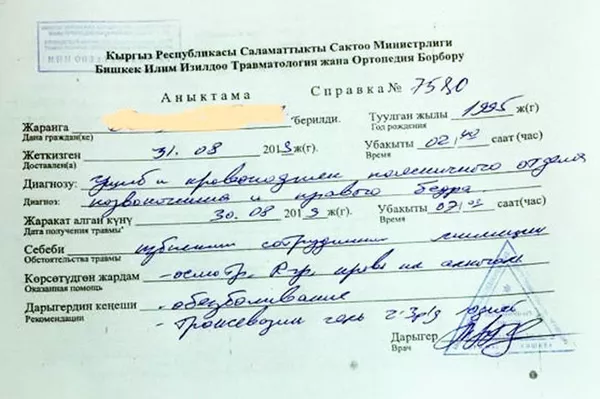 Кыргыз Республикасы Саламаттыкты Сактоо Министрлиги
Бишкек Илим Изилдоо Травматология жана Ортопедия Борбору
Аныктама Справка № 7580
Жаранга берилди. Туулган жылы 1995 ж(г)
Дана граждан(ке) Год рождения
Жеткизген 31.08 2013 ж(г). Убакыты 02 саат (час)
Доставлен(а) Время
Диагнозу: Ушиб и кровоподтек поясничного отдела
Диагноз: позвоночника и правого бедра.
Жаракат алган күнү 30.08 2013 ж(г). Убакыты саат (час)
Дата получения травмы Время
Себеби избиении сотрудники милиции
Обстоятельства травмы
Көрсөтүдгөн жардам - осмотр, кровь на алкоголь
Оказанная помощь
Дарыгердин кеңеши - обезболивание
Рекомендации гель 2-3 р/д дней
Дарыгер
Врач